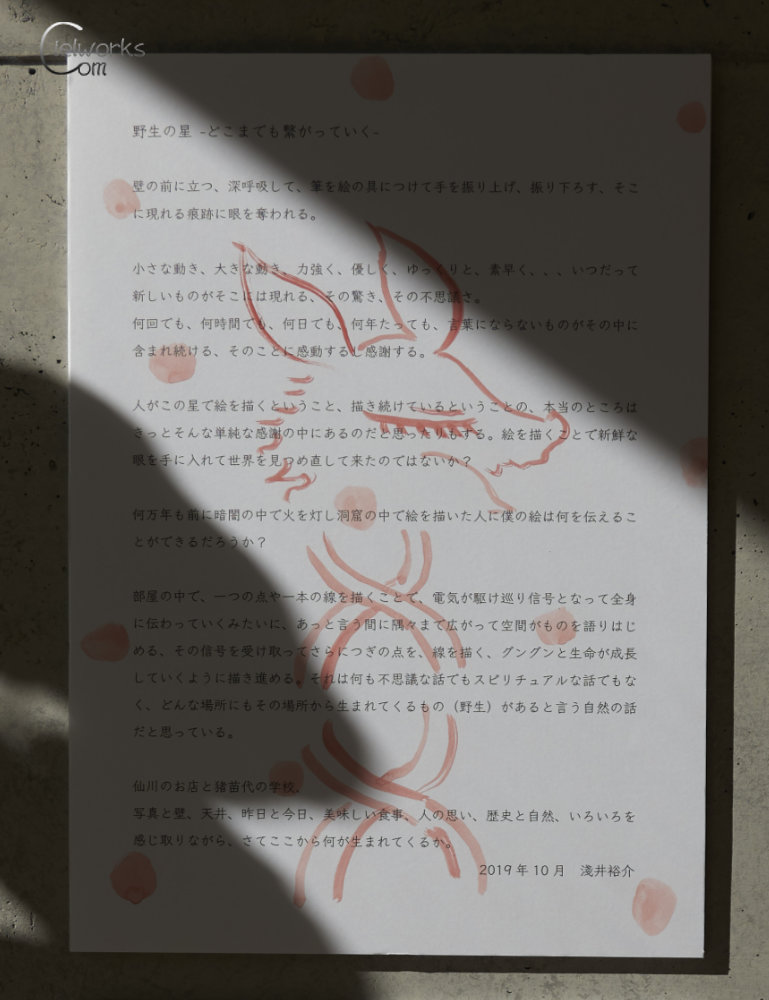 Cielworks
Com
野生の星 -どこまでも繋がっていく-
壁の前に立つ、深呼吸して、筆を絵の具につけて手を振り上げ、振り下ろす、そこ
に現れる痕跡に眼を奪われる。
小さな動き、大きな動き、力強く、優しく、ゆっくりと、素早く、、、いつだって
新しいものがそこには現れる、その驚き、その不思議さ。
何回でも、何時間でも、何日でも、何年たっても、言葉にならないものがその中に
含まれ続ける、そのことに感動するし感謝する。
人がこの星で絵を描くということ、描き続けているということの、本当のところは
きっとそんな単純な感謝の中にあるのだと思ったりもする。絵を描くことで新鮮な
眼を手に入れて世界を見つめ直して来たのではないか？
何万年も前に暗闇の中で火を灯し洞窟の中で絵を描いた人に僕の絵は何を伝えるこ
とができるだろうか？
部屋の中で、一つの点や一本の線を描くことで、電気が駆け巡り信号となって全身
に伝わっていくみたいに、あっと言う間に隅々まで広がって空間がものを語りはじ
める、その信号を受け取ってさらにつぎの点を、線を描く、グングンと生命が成長
していくように描き進める。それは何も不思議な話でもスピリチュアルな話でもな
く、どんな場所にもその場所から生まれてくるもの（野生）があると言う自然の話
だと思っている。
仙川のお店と猪苗代の学校、
写真と壁、天井、昨日と今日、美味しい食事、人の思い、歴史と自然、いろいろを
感じ取りながら、さてここから何が生まれてくるか。
2019年10月　淺井裕介